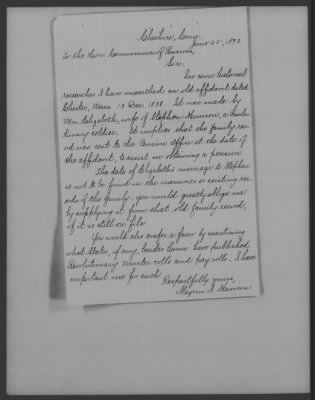 Cheshire, Conn.
June 25, 1892
To the Hon. Commissioner of Pensions,
Sir:
In some historical
researches I have unearthed an old affidavit dated
Chester, Mass 13 Dec. 1838. It was made by
Mrs. Elizabeth, wife of Stephen a Revolu-
tionary soldier. It implies that the family rec-
ord was sent to the Pension office at the date of
the affidavit, to assist in obtaining a pension.
The date of Elizabeth's marriage to Stephen
is not to be found in the memories or existing rec-
ords of the family. You would greatly oblige me
by supplying it from that old family record,
if it is still on file.
You would also confer a favor by mentioning
what States, if any, besides Conn. have published
Revolutionary muster-rolls and pay-rolls. I have
important use for such.
Respectfully yours,